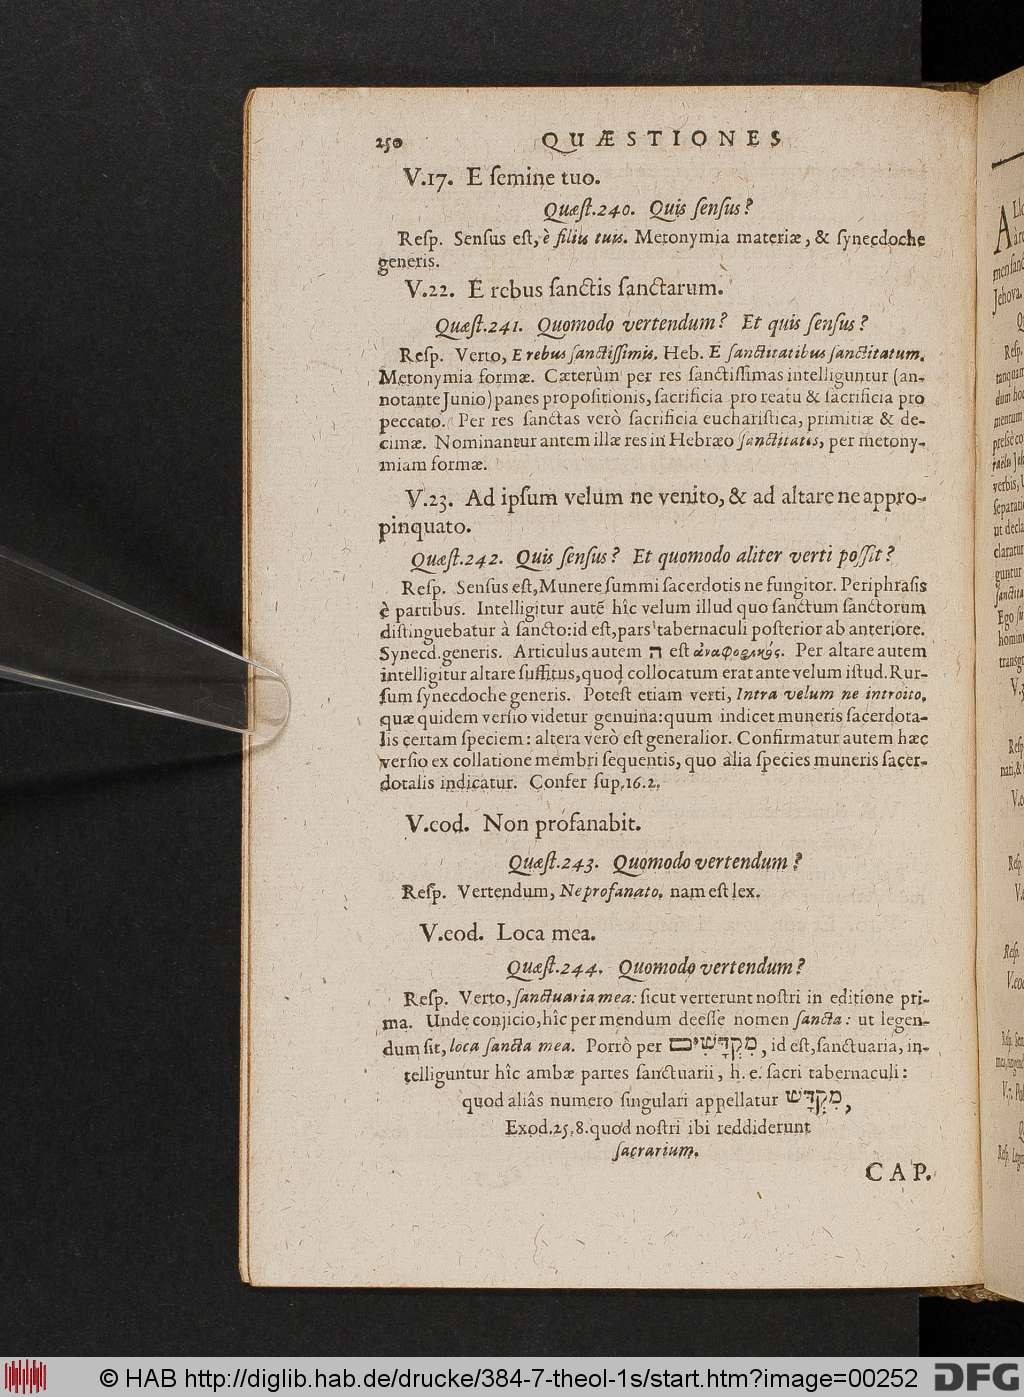 250 QUÆSTIONES
V.17. E ſemine tuo.
Quæſt.240. Quis ſenſus?
Reſp. Senſus eſt, è filiis tuis. Metonymia materiæ, & ſynecdoche
generis.
V.22. E rebus ſanctis ſanctarum.
Quæſt.241. Quomodo vertendum? Et quis ſenſus?
Reſp. Verto, E rebus ſanctiſſimis. Heb. E ſanctitatibus ſanctitatum.
Metonymia formæ. Cæterùm per res ſanctiſſimas intelliguntur (an-
notante Junio) panes propoſitionis, ſacrificia pro reatu & ſacrificia pro
peccato. Per res ſanctas verò ſacrificia euchariſtica, primitiæ & de-
cimæ. Nominantur antem illæ res in Hebræo ſanctitates, per metony-
miam formæ.
V.23. Ad ipſum velum ne venito, & ad altare ne appro-
pinquato.
Quæſt.242. Quis ſenſus? Et quomodo aliter verti poſſit?
Reſp. Senſus eſt, Munere ſummi ſacerdotis ne fungitor. Periphraſis
è partibus. Intelligitur autē hîc velum illud quo ſanctum ſanctorum
diſtinguebatur à ſancto: id eſt, pars tabernaculi poſterior ab anteriore.
Synecd. generis. Articulus autem ה eſt ἀναφορικής. Per altare autem
intelligitur altare ſuffitus, quod collocatum erat ante velum iſtud. Rur-
ſum ſynecdoche generis. Poteſt etiam verti, Intra velum ne introito,
quæ quidem verſio videtur genuina: quum indicet muneris ſacerdota-
lis certam ſpeciem: altera verò eſt generalior. Confirmatur autem hæc
verſio ex collatione membri ſequentis, quo alia ſpecies muneris ſacer-
dotalis indicatur. Confer ſup. 16.2.
V.eod. Non profanabit.
Quæſt.243. Quomodo vertendum?
Reſp. Vertendum, Ne profanato. nam eſt lex.
V.eod. Loca mea.
Quæſt.244. Quomodo vertendum?
Reſp. Verto, ſanctuaria mea: ſicut verterunt noſtri in editione pri-
ma. Unde conjicio, hîc per mendum deeſſe nomen ſancta: ut legen-
dum ſit, loca ſancta mea. Porrò per מִקְדָּשִׁים, id eſt, ſanctuaria, in-
telliguntur hîc ambæ partes ſanctuarii, h. e. ſacri tabernaculi:
quod aliâs numero ſingulari appellatur מִקְדָּשׁ,
Exod. 25.8. quod noſtri ibi reddiderunt
ſacrarium.
CAP.
© HAB http://diglib.hab.de/drucke/384-7-theol-1s/start.htm?image=00252
DFG